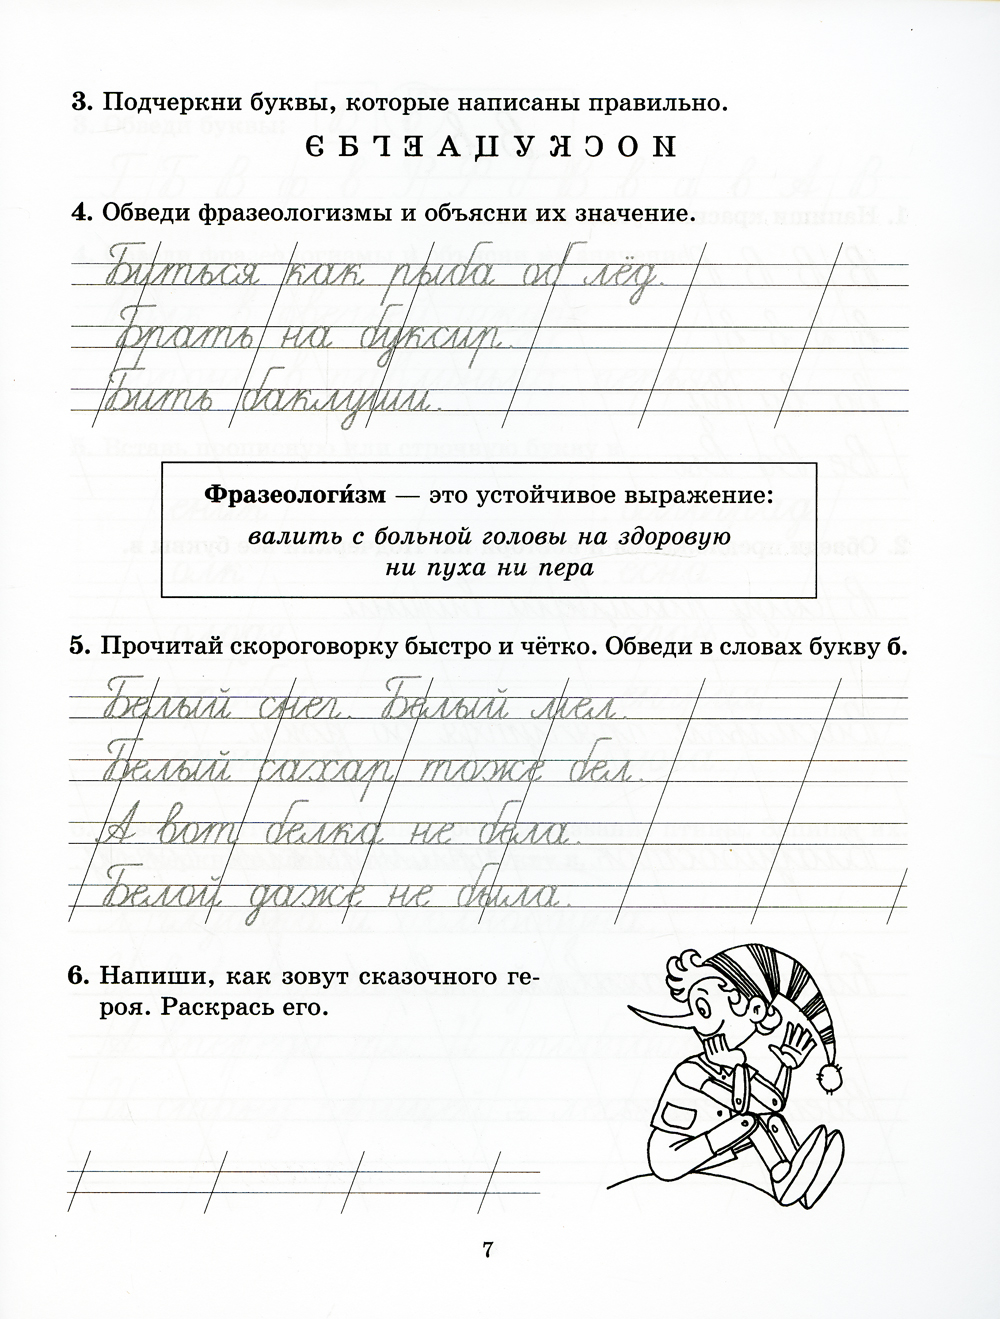 3. Подчеркни буквы, которые написаны правильно.
Є Б ꓶ Ǝ А Ц У ꓘ Ɔ О N
4. Обведи фразеологизмы и объясни их значение.
Биться как рыба об лёд.
Брать на буксир.
Бить баклуши.
Фразеологи́зм — это устойчивое выражение:
валить с больной головы на здоровую
ни пуха ни пера
5. Прочитай скороговорку быстро и чётко. Обведи в словах букву б.
Белый снег. Белый мел.
Белый сахар тоже бел.
А вот белка не бела.
Белой даже не была.
6. Напиши, как зовут сказочного ге-
роя. Раскрась его.
7